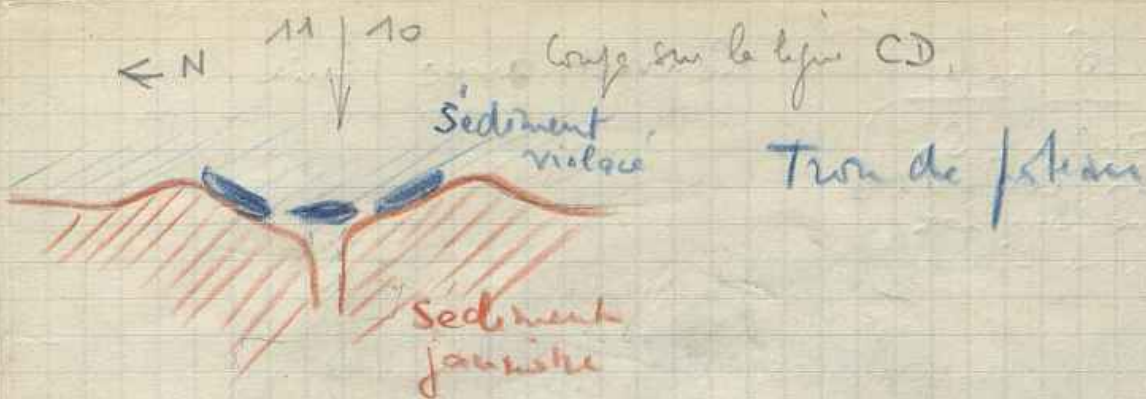 11 10
← N
Coupe sur la ligne CD.
Sédiment
violacé
Trou de poteau
Sédiment
jaunâtre